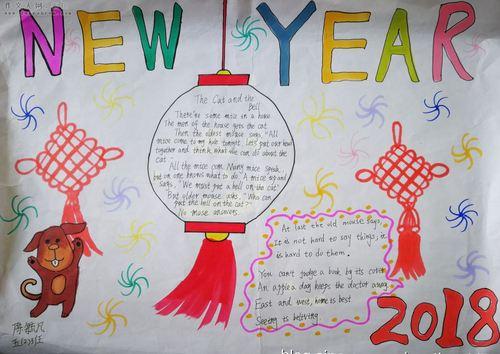 NEW YEAR
The Cat and the
Bell
There're some mice in a house
The man of the house gets the cat.
Then, the oldest mouse says, "All
mice come to my hole tonight. Let's put our heads
together and think what we can do about the
cat."
All the mice come. Many mice speak,
but no one knows what to do. A mice up and
says, "We must put a bell on the cat"
But older mouse asks, "Who can
put the bell on the cat?"
No mouse answers.
At last the old mouse says,
It is not hard to say things, it
is hard to do them.
You can't judge a book by its cover
An apple a day keeps the doctor away
East and west, home is best
Seeing is believing
2018